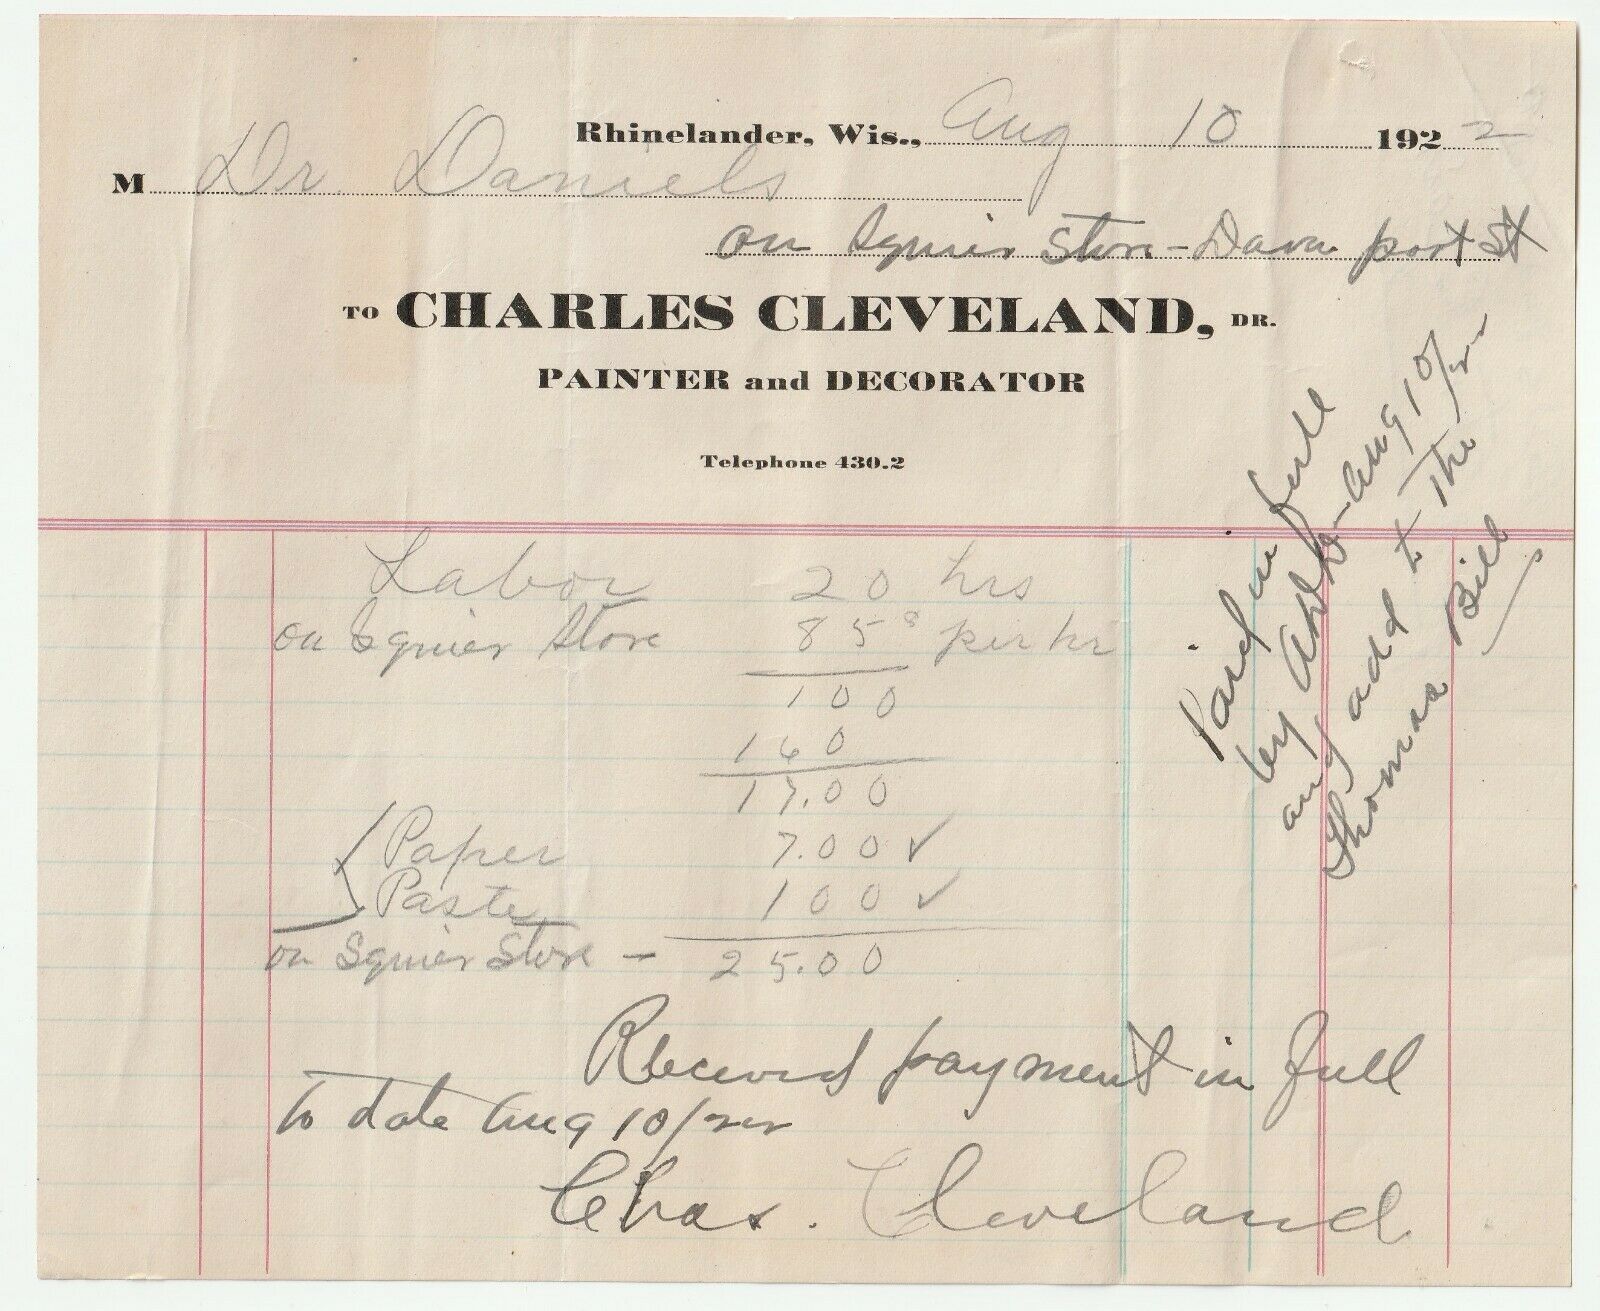 Rhinelander, Wis., Aug 10 1922
M Dr. Daniels
on Squier Store - Davenport St
TO CHARLES CLEVELAND, DR.
PAINTER and DECORATOR
Telephone 430.2
Labor 20 hrs
on Squier Store 85¢ per hr
100
160
17.00
Paper 7.00 ✓
Paste 100 ✓
on Squier Store - 25.00
Received payment in full
to date Aug 10/22
Chas. Cleveland
Paid in full
by - Aug 10/22
and add to The
Thomas Bill